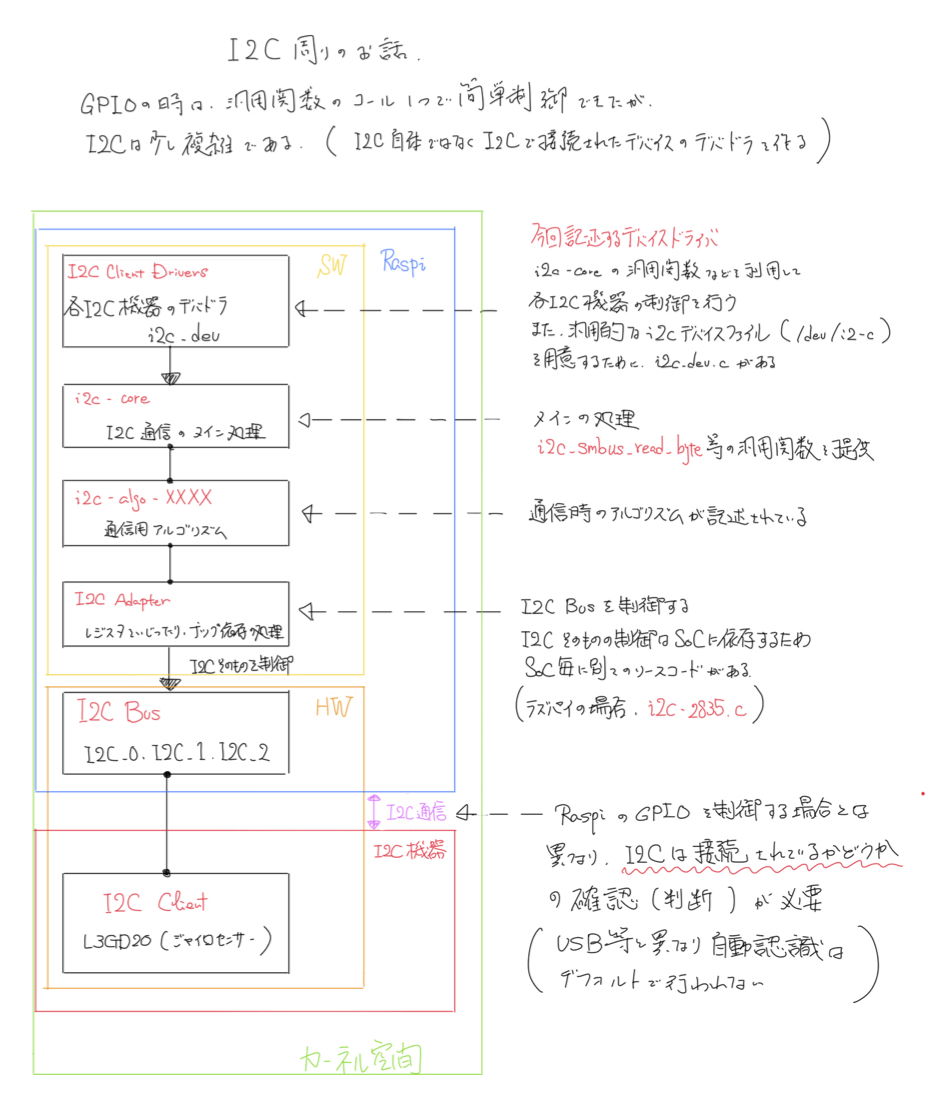 I2C 周りのお話.
GPIOの時は、汎用関数のコール1つで簡単制御できたが、
I2Cは少し複雑である.(I2C自体ではなくI2Cで接続されたデバイスのデバドラを作る)
SW
Raspi
I2C Client Drivers
各I2C機器のデバドラ
i2c_dev
今回記述するデバイスドライバ
i2c-coreの汎用関数などを利用して
各I2C機器の制御を行う
また、汎用的なi2cデバイスファイル(/dev/i2-c)
を用意するために、i2c_dev.cがある
i2c-core
I2C通信のメイン処理
メインの処理
i2c_smbus_read_byte等の汎用関数を提供
i2c-algo-XXXX
通信用アルゴリズム
通信時のアルゴリズムが記述されている
I2C Adapter
レジスタをいじったり、チップ依存の処理
I2Cそのものを制御
I2C Busを制御する
I2Cそのものの制御はSoCに依存するため
SoC毎に別でのソースコードがある.
(ラズパイの場合、i2c-2835.c)
HW
I2C Bus
I2C_0、I2C_1、I2C_2
I2C通信
RaspiのGPIOを制御する場合とは
異なり、I2Cは接続されているかどうか
の確認(判断)が必要
(USB等と異なり自動認識は
デフォルトで行われない)
I2C機器
I2C Client
L3GD20(ジャイロセンサー)
カーネル空間